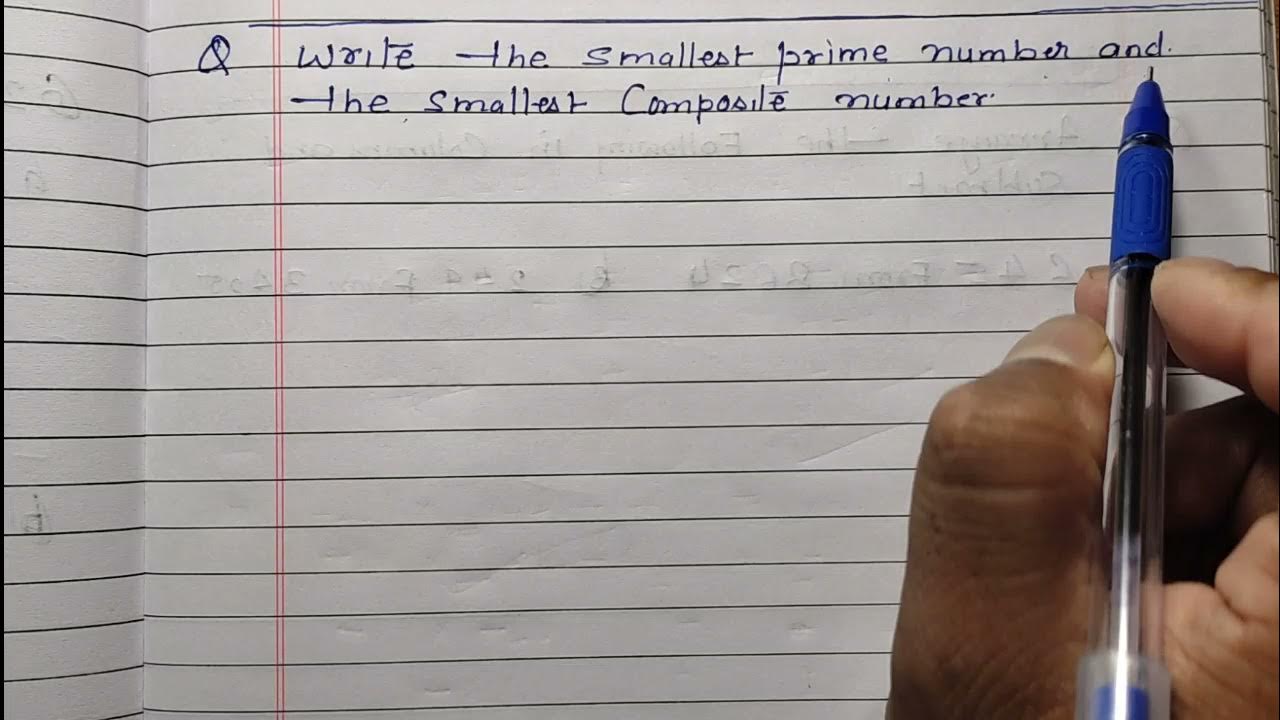 Q Write the smallest prime number and
the smallest Composite number.